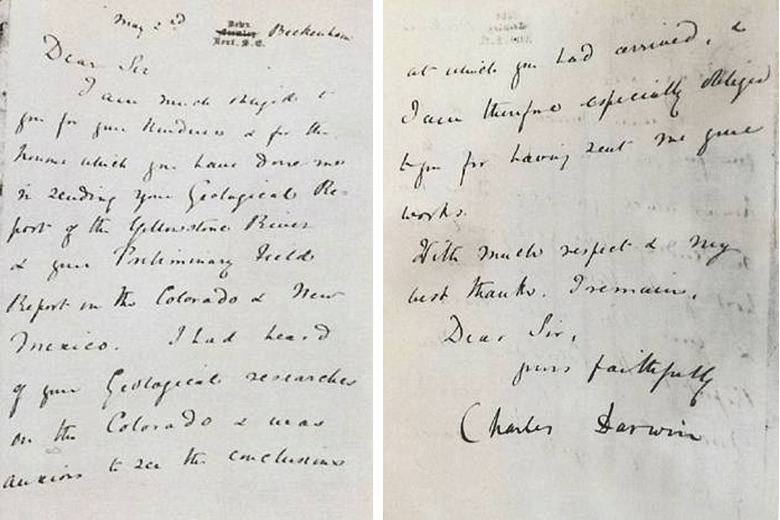 May 2nd
Down
Kent. S.E.
Beckenham
Dear Sir
I am much obliged to
you for your kindness & for the
honour which you have done me
in sending your Geological Re-
port of the Yellowstone River
& your Preliminary Field
Report on the Colorado & New
Mexico. I had heard
of your Geological researches
on the Colorado & was
anxious to see the conclusions
at which you had arrived, &
I am therefore especially obliged
to you for having sent me your
works.
With much respect & my
best thanks. I remain,
Dear Sir,
yours faithfully
Charles Darwin